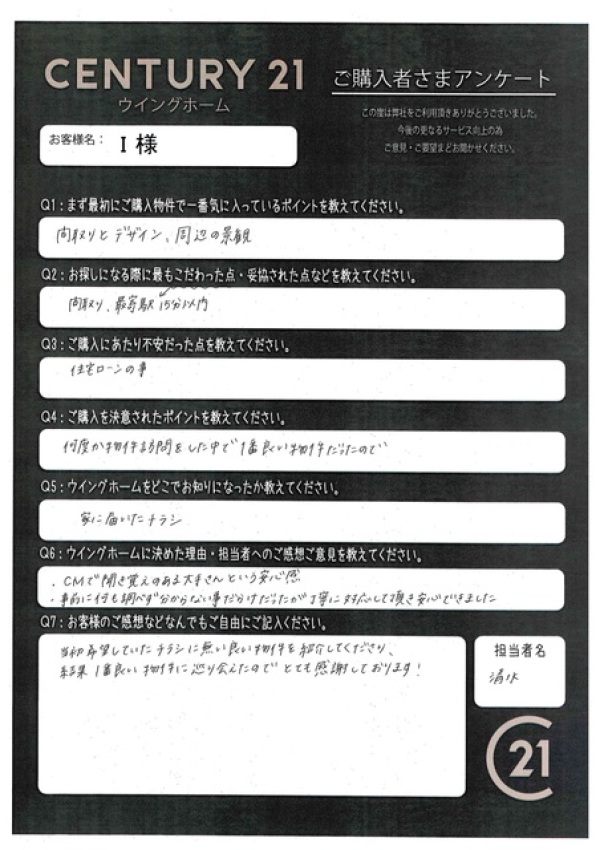 CENTURY 21
ウイングホーム
ご購入者さまアンケート
この度は弊社をご利用頂きありがとうございました。
今後の更なるサービス向上の為
ご意見・ご要望をお聞かせください。
お客様名： I 様
Q1：まず最初にご購入物件で一番気に入っているポイントを教えてください。
間取りとデザイン、周辺の景観
Q2：お探しになる際に最もこだわった点・妥協された点などを教えてください。
間取り、最寄駅15分以内
Q3：ご購入にあたり不安だった点を教えてください。
住宅ローンの事
Q4：ご購入を決意されたポイントを教えてください。
何度か物件訪問をした中で1番良い物件だったので
Q5：ウイングホームをどこでお知りになったか教えてください。
家に届いたチラシ
Q6：ウイングホームに決めた理由・担当者へのご感想ご意見を教えてください。
・CMで聞き覚えのある大手さんという安心感
・事前に何も調べず分からない事だらけだったが丁寧に対応して頂き安心できました
Q7：お客様のご感想などなんでもご自由にご記入ください。
当初希望していたチラシに無い良い物件を紹介してくださり、
結果1番良い物件に巡り会えたのでとても感謝しております！
担当者名
清水
C21